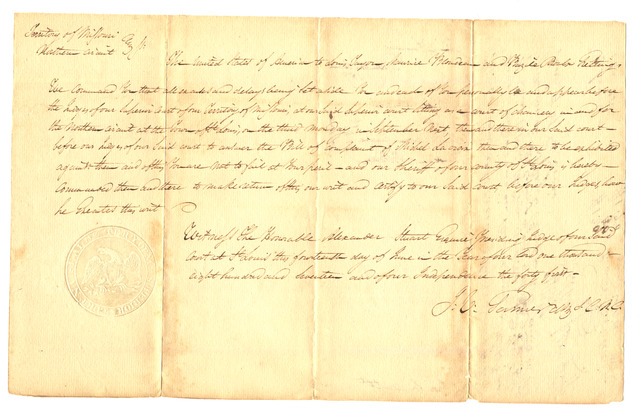 Territory of Missouri
Northern Circuit
The United States of America to Louis, Maurice and
We Command You that all excuses and delays being set aside You and each of You personally be and appear before
the Judges of our Superior Court of our Territory of Missouri, at our said Superior Court sitting as a Court of Chancery in and for
the Northern Circuit at the Town of St Louis, on the third Monday in September next, then and there in our said court
before our Judges of our said Court to answer the Bill of Complaint of then and there to be exhibited
against them and of this You are not to fail at Your peril — and our Sheriff of our County of St Louis is hereby
Commanded then and there to make return of this our writ and certify to our said Court before our Judges how
he Executes this writ
Witness The Honorable Alexander Stuart Esquire Presiding Judge of our said
Court at St Louis this fourteenth day of June in the Year of our Lord one thousand
eight hundred and seventeen and of our Independence the forty first —